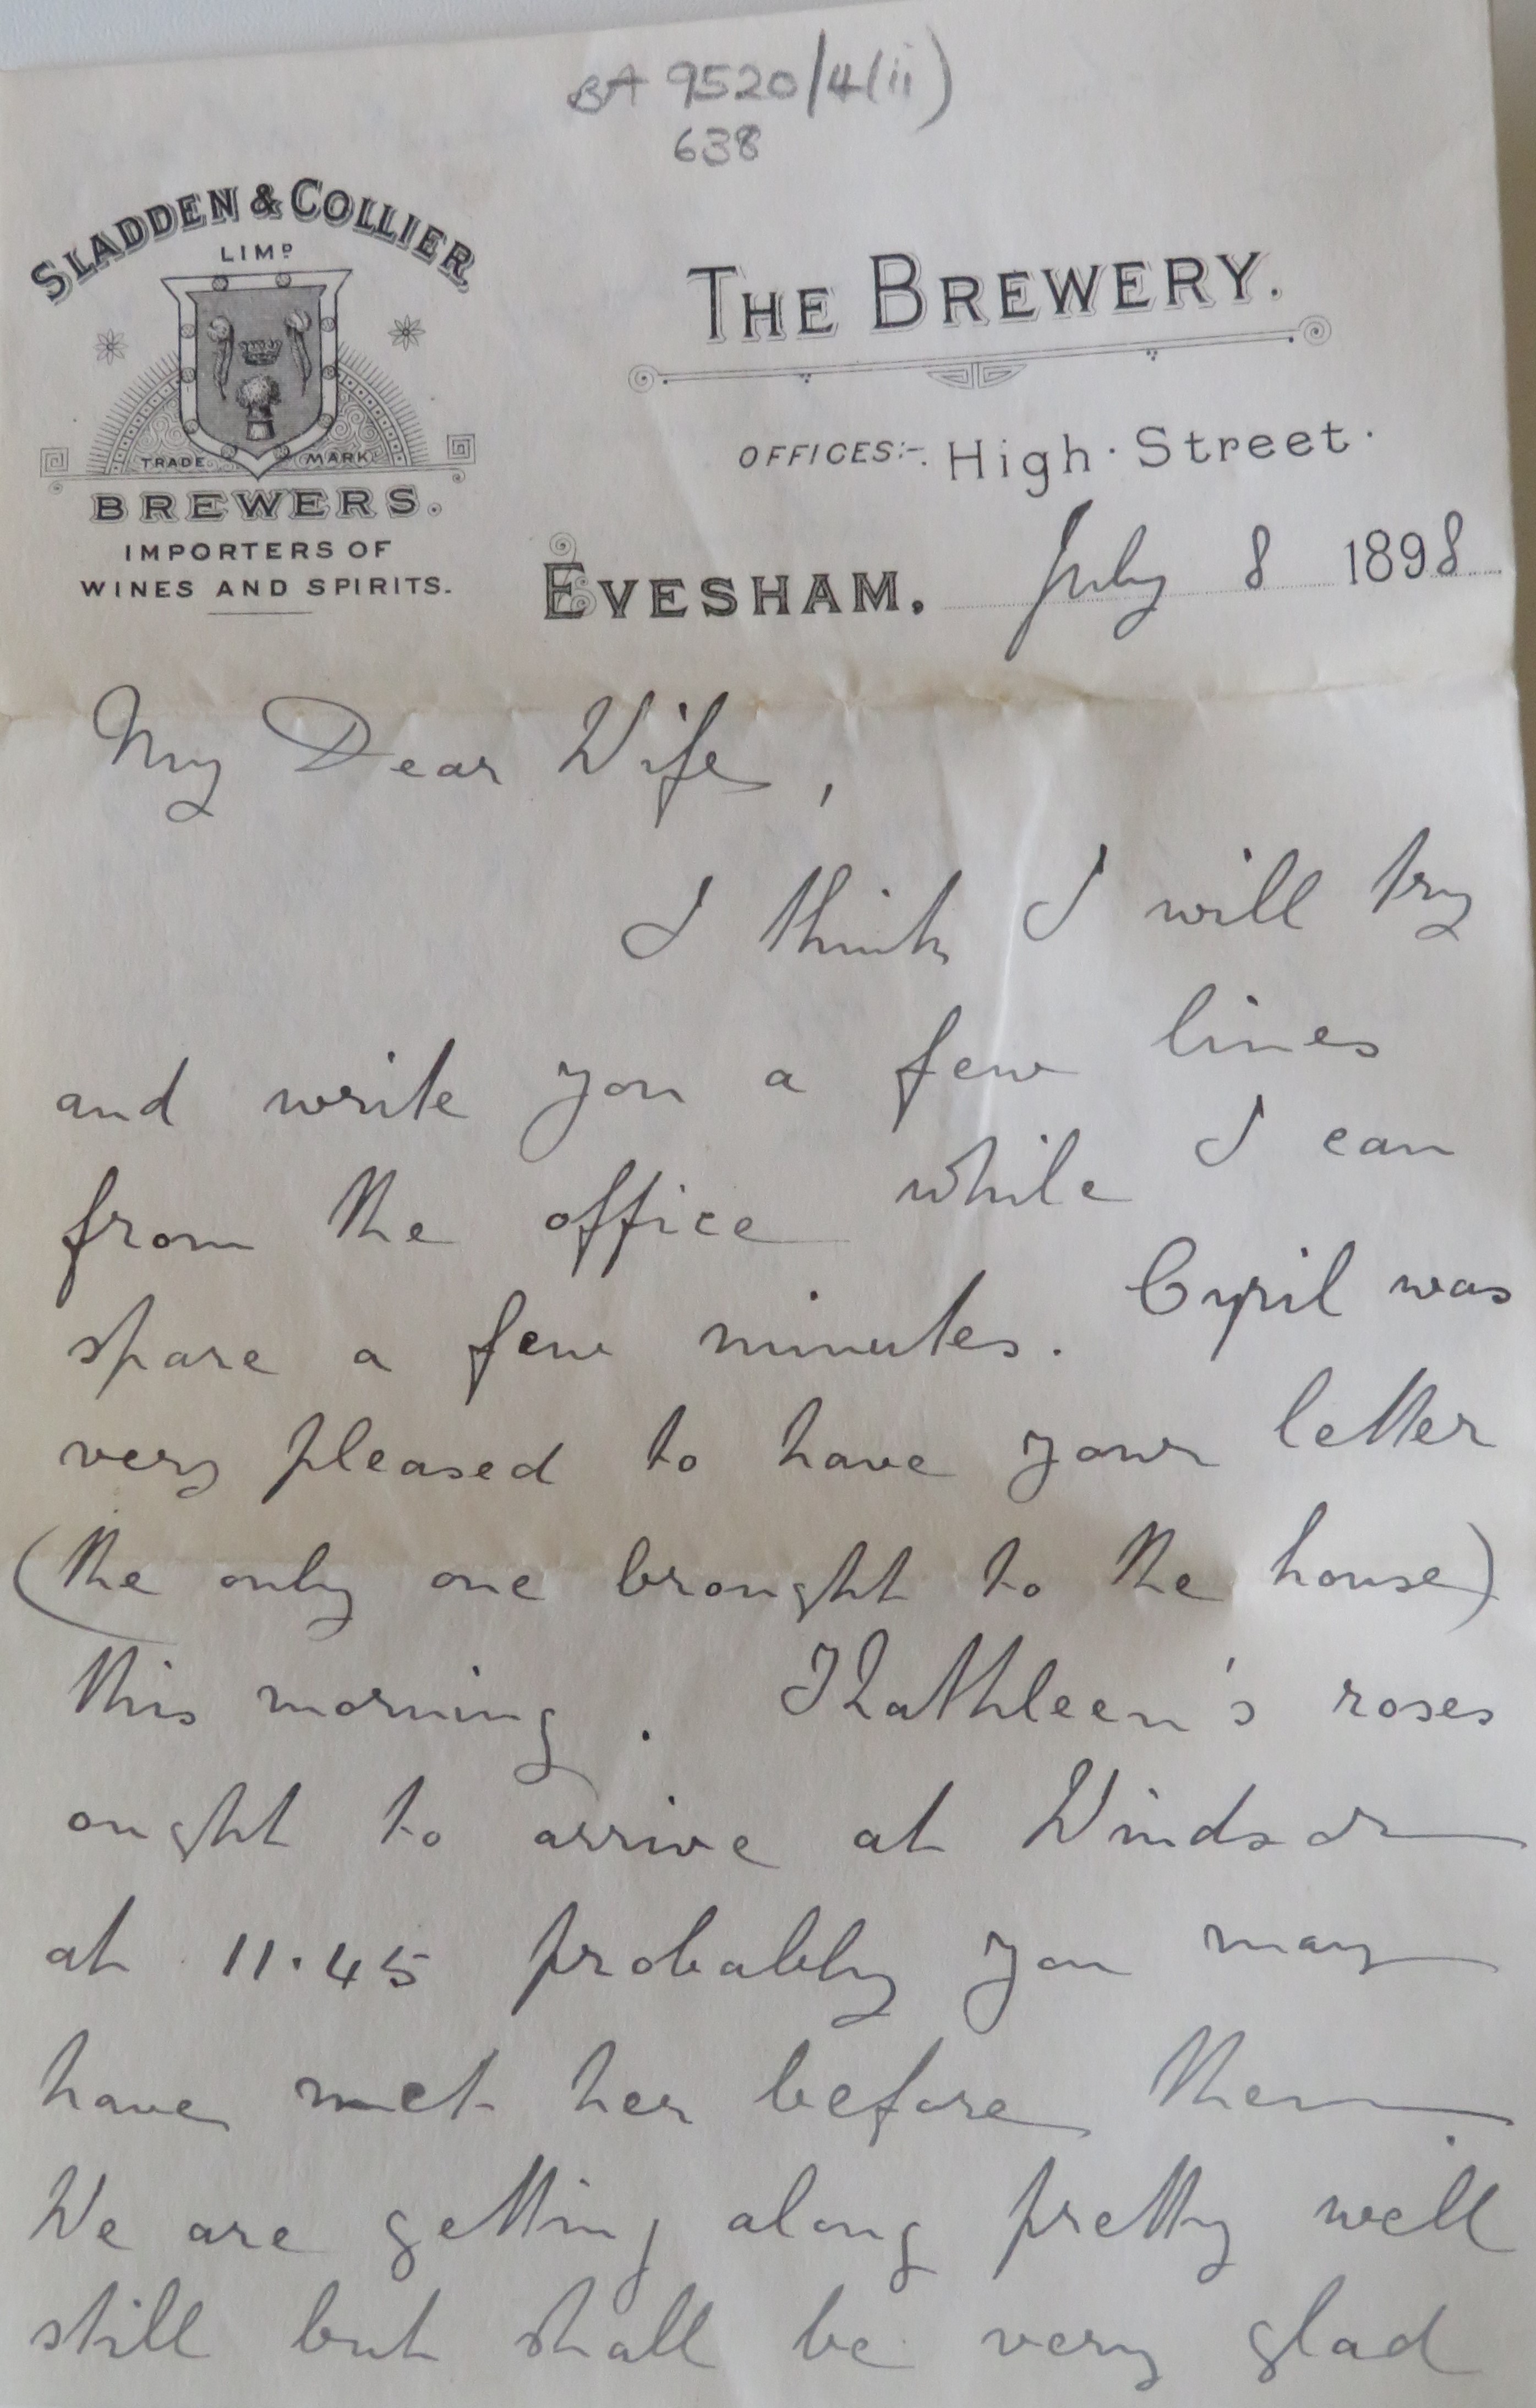 BA 9520/4(ii)
638
SLADDEN & COLLIER
LIMD
TRADE MARK
BREWERS.
IMPORTERS OF
WINES AND SPIRITS.
THE BREWERY.
OFFICES:- High Street.
EVESHAM. July 8 1898
My Dear Wife,
I think I will try
and write you a few lines
from the office while I can
spare a few minutes. Cyril was
very pleased to have your letter
(the only one brought to the house)
this morning. Kathleen's roses
ought to arrive at Windsor
at 11.45 probably you may
have met her before then
We are getting along pretty well
still but shall be very glad